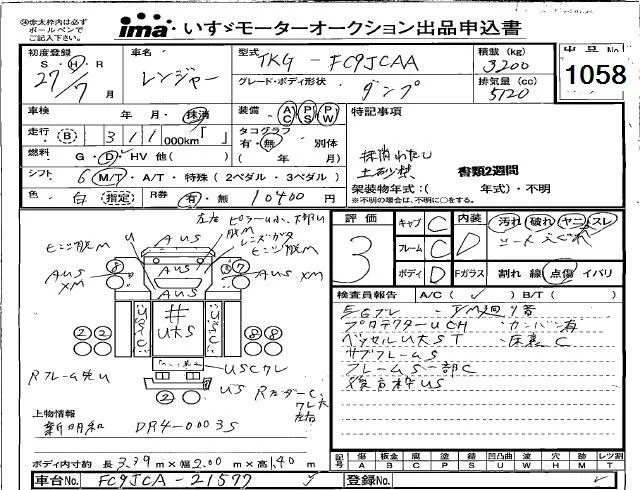 ※赤太枠内は必ず
ボールペンで
ご記入下さい。
ima いすゞモーターオークション出品申込書
初度登録 S・H・R 27/7月
車名 レンジャー
型式 TKG - FC9JCAA
積載 (kg) 3200
出品No
1058
グレード・ボディ形状 ダンプ
排気量 (cc) 5120
車検 年 月 抹消
装備 AC PS PW
特記事項
走行 B 311 000km「 」
タコグラフ 有・無 別体 ( 年 月)
抹消わたし
土砂禁 書類2週間
燃料 G・D・HV 他( )
シフト 6 M/T・A/T・特殊 (2ペダル・3ペダル)
架装物年式:( 年式)・不明
※不明の場合は、不明に○をする。
色 白 指定 R券 有・無 10400円
左右
ヒビ脱M
U
AUS
脱M
AUS
AUS XM
8
7
AUS XM
AUS
USC
#
UAS
USC
2 2
8 8
USCワレ
Rフレーム先U
2
US
左右
評価 3
キャブ C
フレーム C
ボディ D
内装 D
汚れ 破れ ヤニ スレ
シートえぐれ
Fガラス 割れ 線 点傷 イバリ
検査員報告 A/C ( ✓ ) B/T ( )
プロテクターUCH カンバン有
ベッセルUAST 床裏C
サブフレームS
フレームS一部C
後方枠US
上物情報
新明和 DR4-0003S
ボディ内寸約 長3.39m×幅2.00m×高1.40m
記号 傷A 板金B 腐C 塗P 錆S 凹凸曲U 波W 穴H 跡M レツ割T
車台No. FC9JCA-21577
登録No.